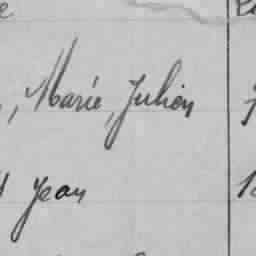 , Marie, Julien
Jean